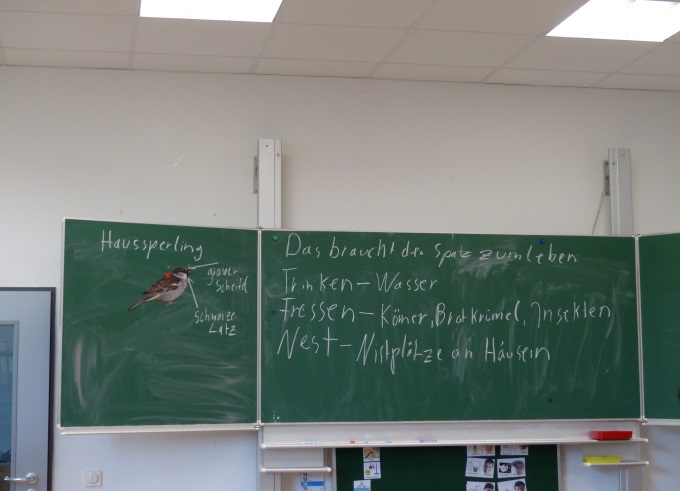 Haussperling
grauer
Scheitel
schwarze
Latz
Das braucht der Spatz zum Leben
Trinken – Wasser
Fressen – Körner, Brotkrümel, Insekten
Nest – Nistplätze an Häusern